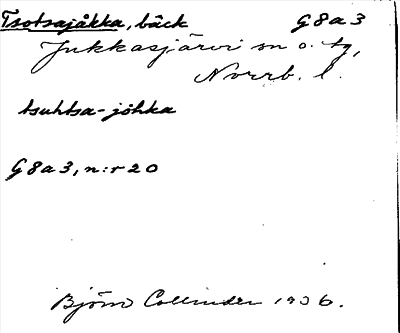 Tsotsajåkka, bäck G8a3
Jukkasjärvi sn o. tg,
Norrb. l.
tsuhtsa-jóhka
G8a3, n:r 20
Björn Collinder 1936.